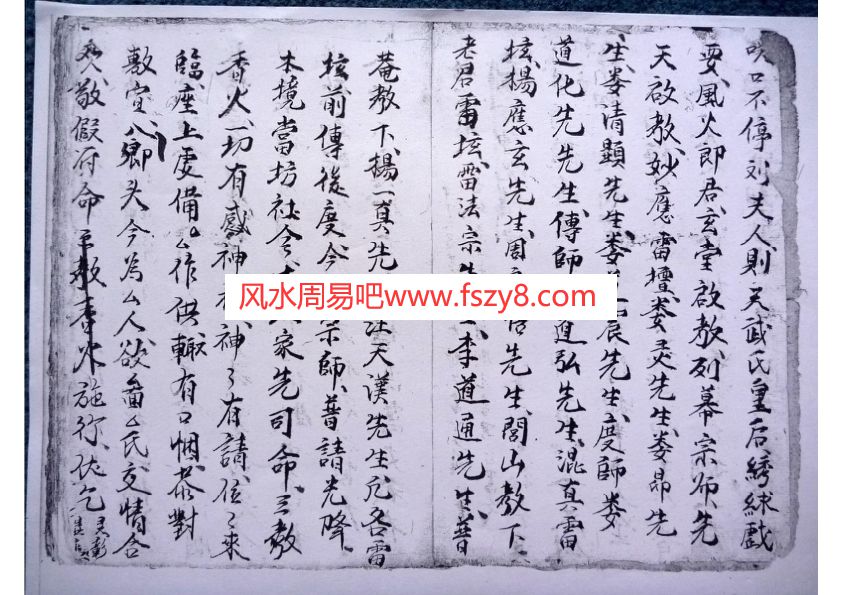 咒口不停刘夫人則天武氏皇后綉绿戲
要風火郎君玄堂啟教列幕宗師先
天啟教妙應雷壇娄炁先生娄昂先
生娄清顯先生娄 晨先生度師娄
道化先先生傳師 道弘先生混真雷
坛揚應玄先生周 先生閭山教下
老君雷坛雷法宗 李道通先生普
菴教下揚一真先 汪天漢先生凡各雷
坛前傳後度今 宗師普請光降
本境當坊社令 家先司命三教
香火一切有感神 神々有請位々來
臨座上處備厶作供輙有口烟茶對
敷宣八卿头今為厶人欲畨厶氏交情合
敬假府命 教香火施行伏乞灵彰
风水周易吧www.fszy8.com